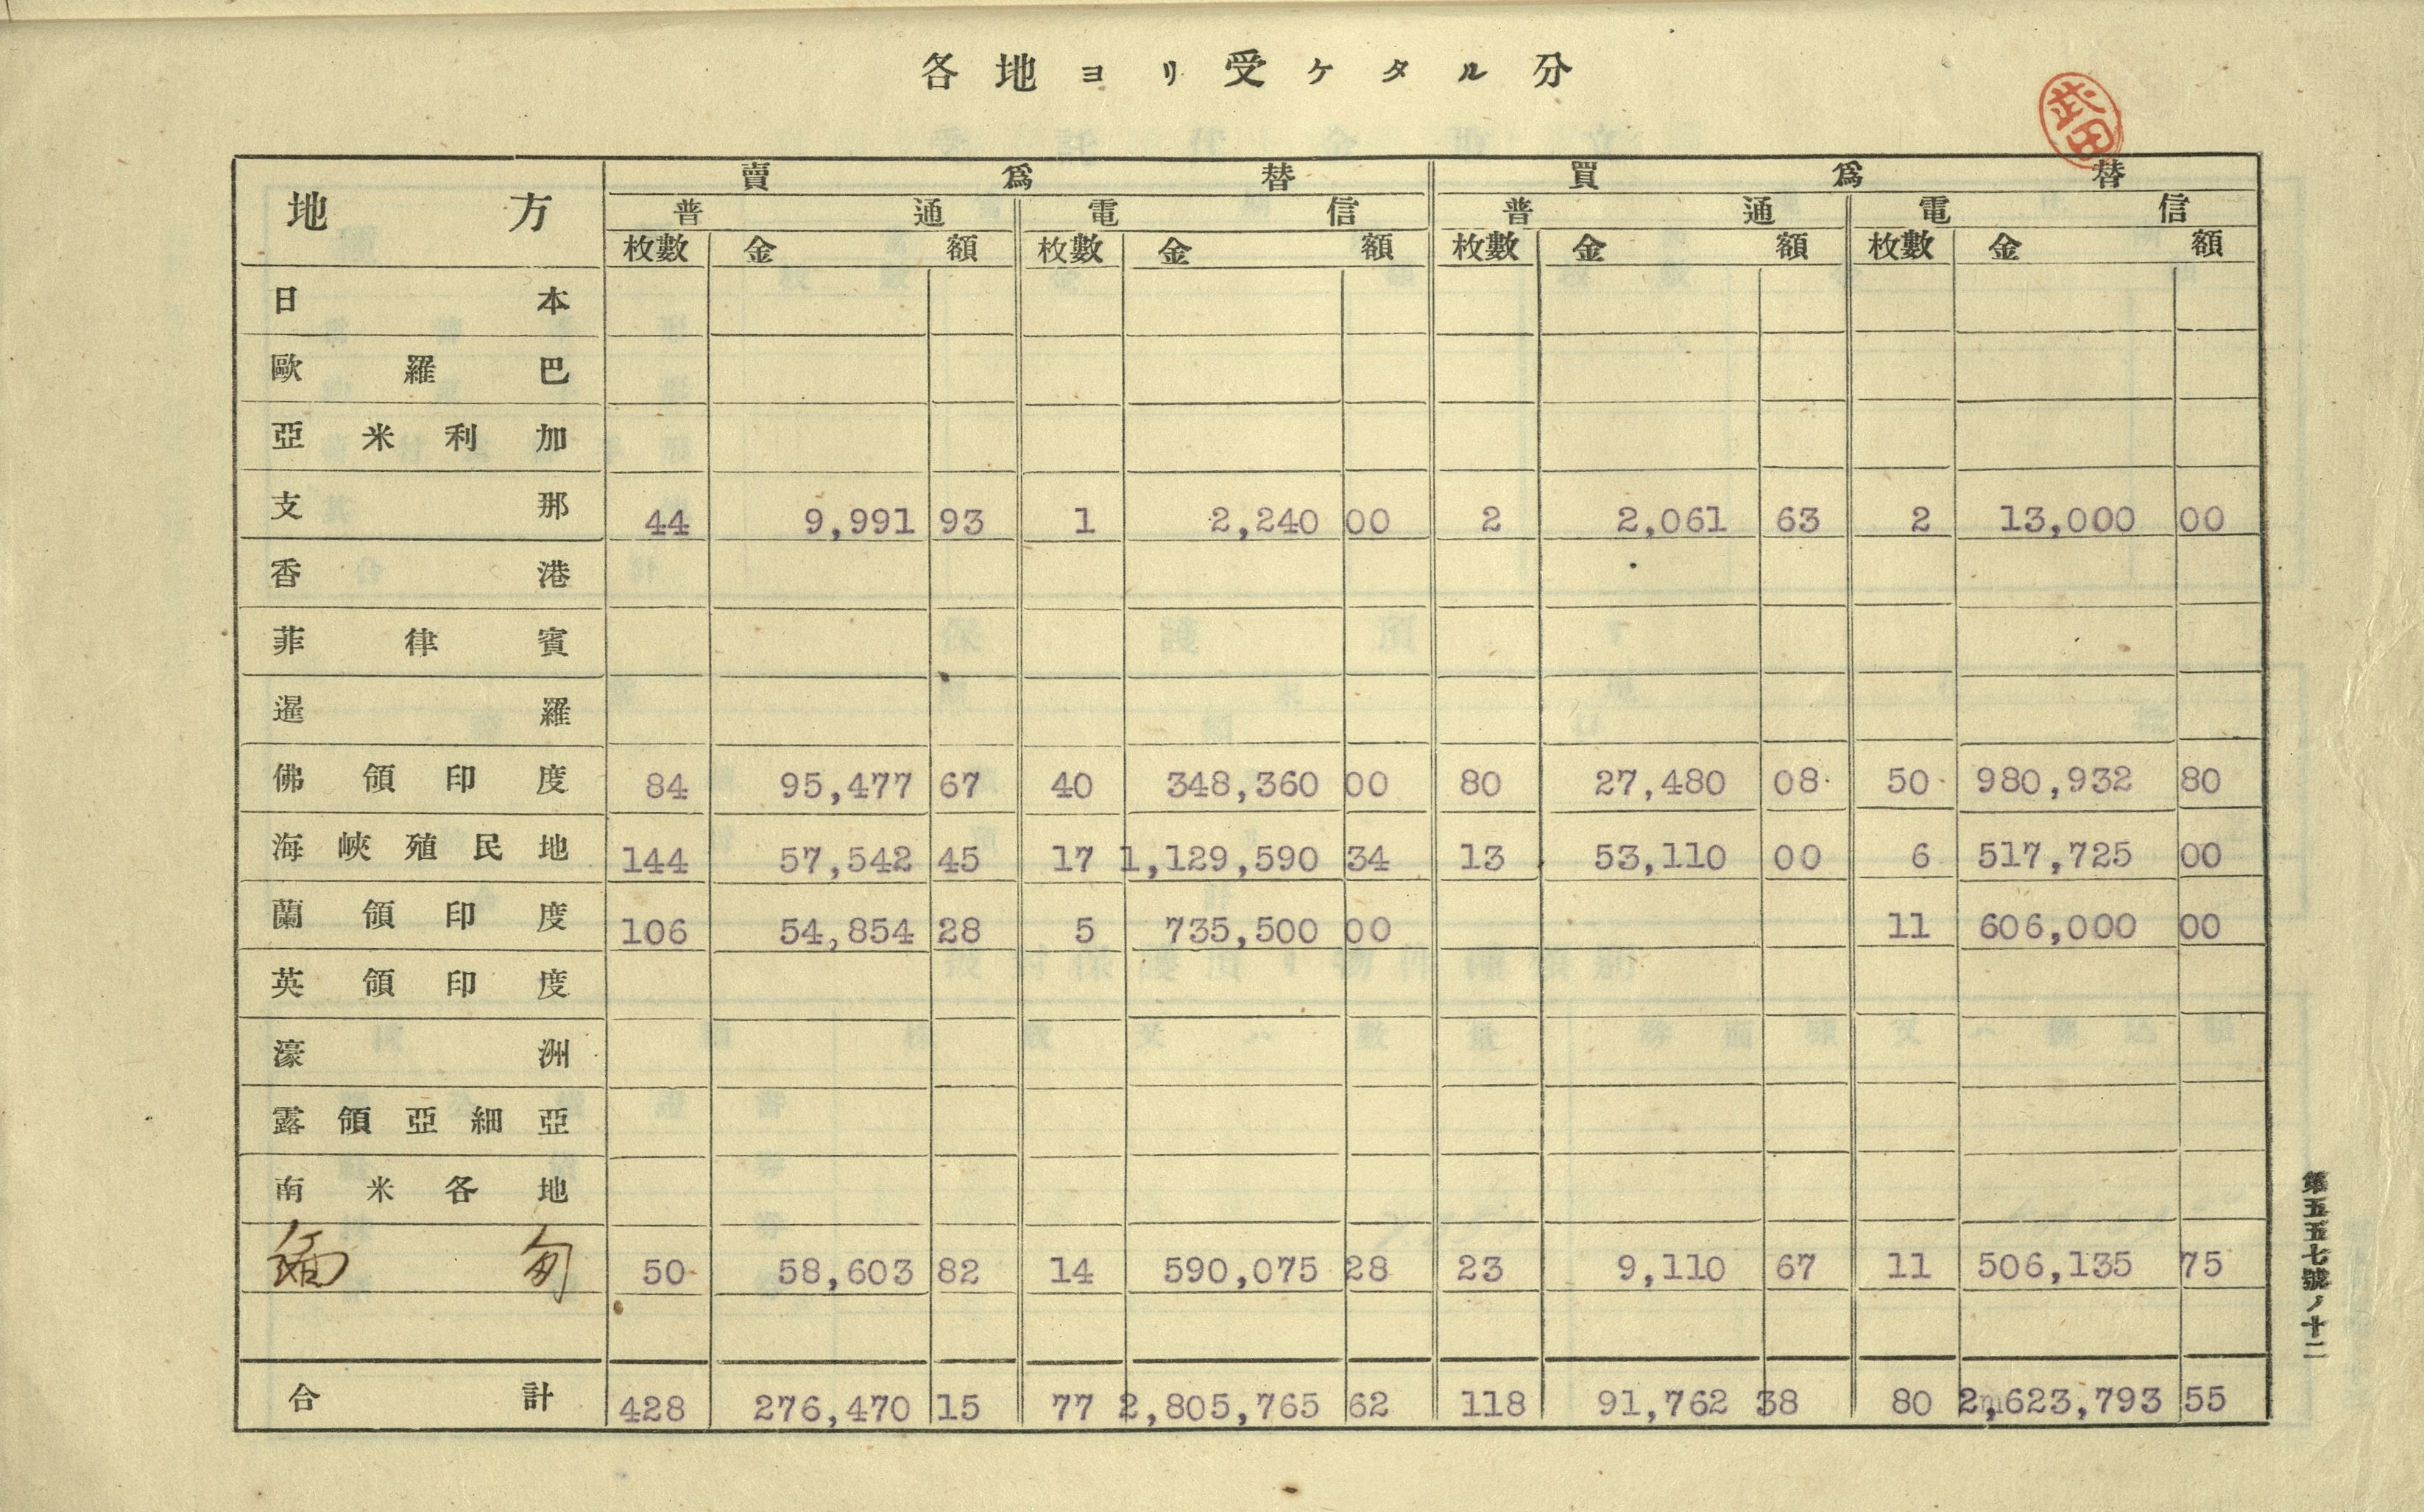 各地ヨリ受ケタル分
武田
地方 賣爲替 買爲替
普通 電信 普通 電信
枚數 金額 枚數 金額 枚數 金額 枚數 金額
日本
歐羅巴
亞米利加
支那 44 9,991 93 1 2,240 00 2 2,061 63 2 13,000 00
香港
菲律賓
暹羅
佛領印度 84 95,477 67 40 348,360 00 80 27,480 08 50 980,932 80
海峽殖民地 144 57,542 45 17 1,129,590 34 13 53,110 00 6 517,725 00
蘭領印度 106 54,854 28 5 735,500 00 11 606,000 00
英領印度
濠洲
露領亞細亞
南米各地
緬甸 50 58,603 82 14 590,075 28 23 9,110 67 11 506,135 75
合計 428 276,470 15 77 2,805,765 62 118 91,762 38 80 2,623,793 55
第五五七號ノ十二